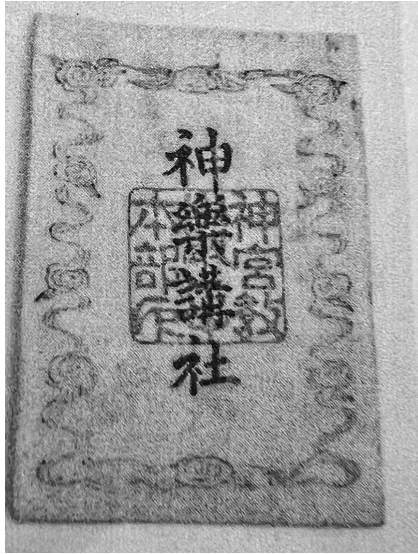 神樂講社
神宮教
本部印